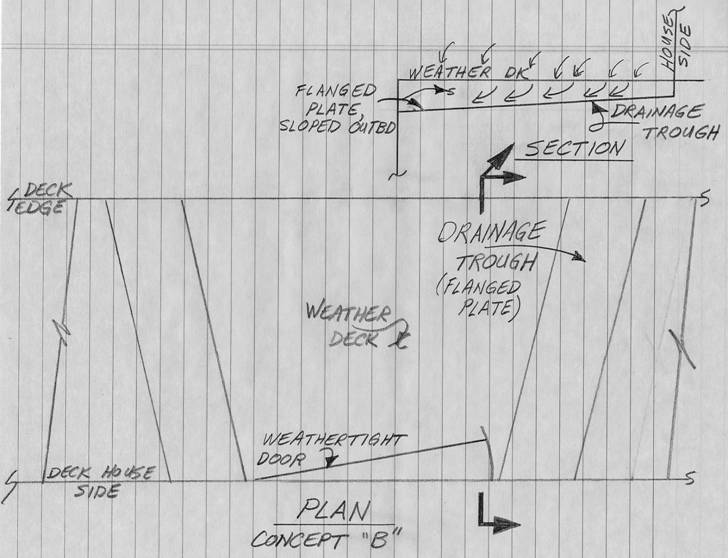 HOUSE
SIDE
WEATHER DK
FLANGED
PLATE,
SLOPED OUTBD
DRAINAGE
TROUGH
SECTION
DECK
EDGE
DRAINAGE
TROUGH
(FLANGED
PLATE)
WEATHER
DECK
WEATHERTIGHT
DOOR
DECK HOUSE
SIDE
PLAN
CONCEPT "B"